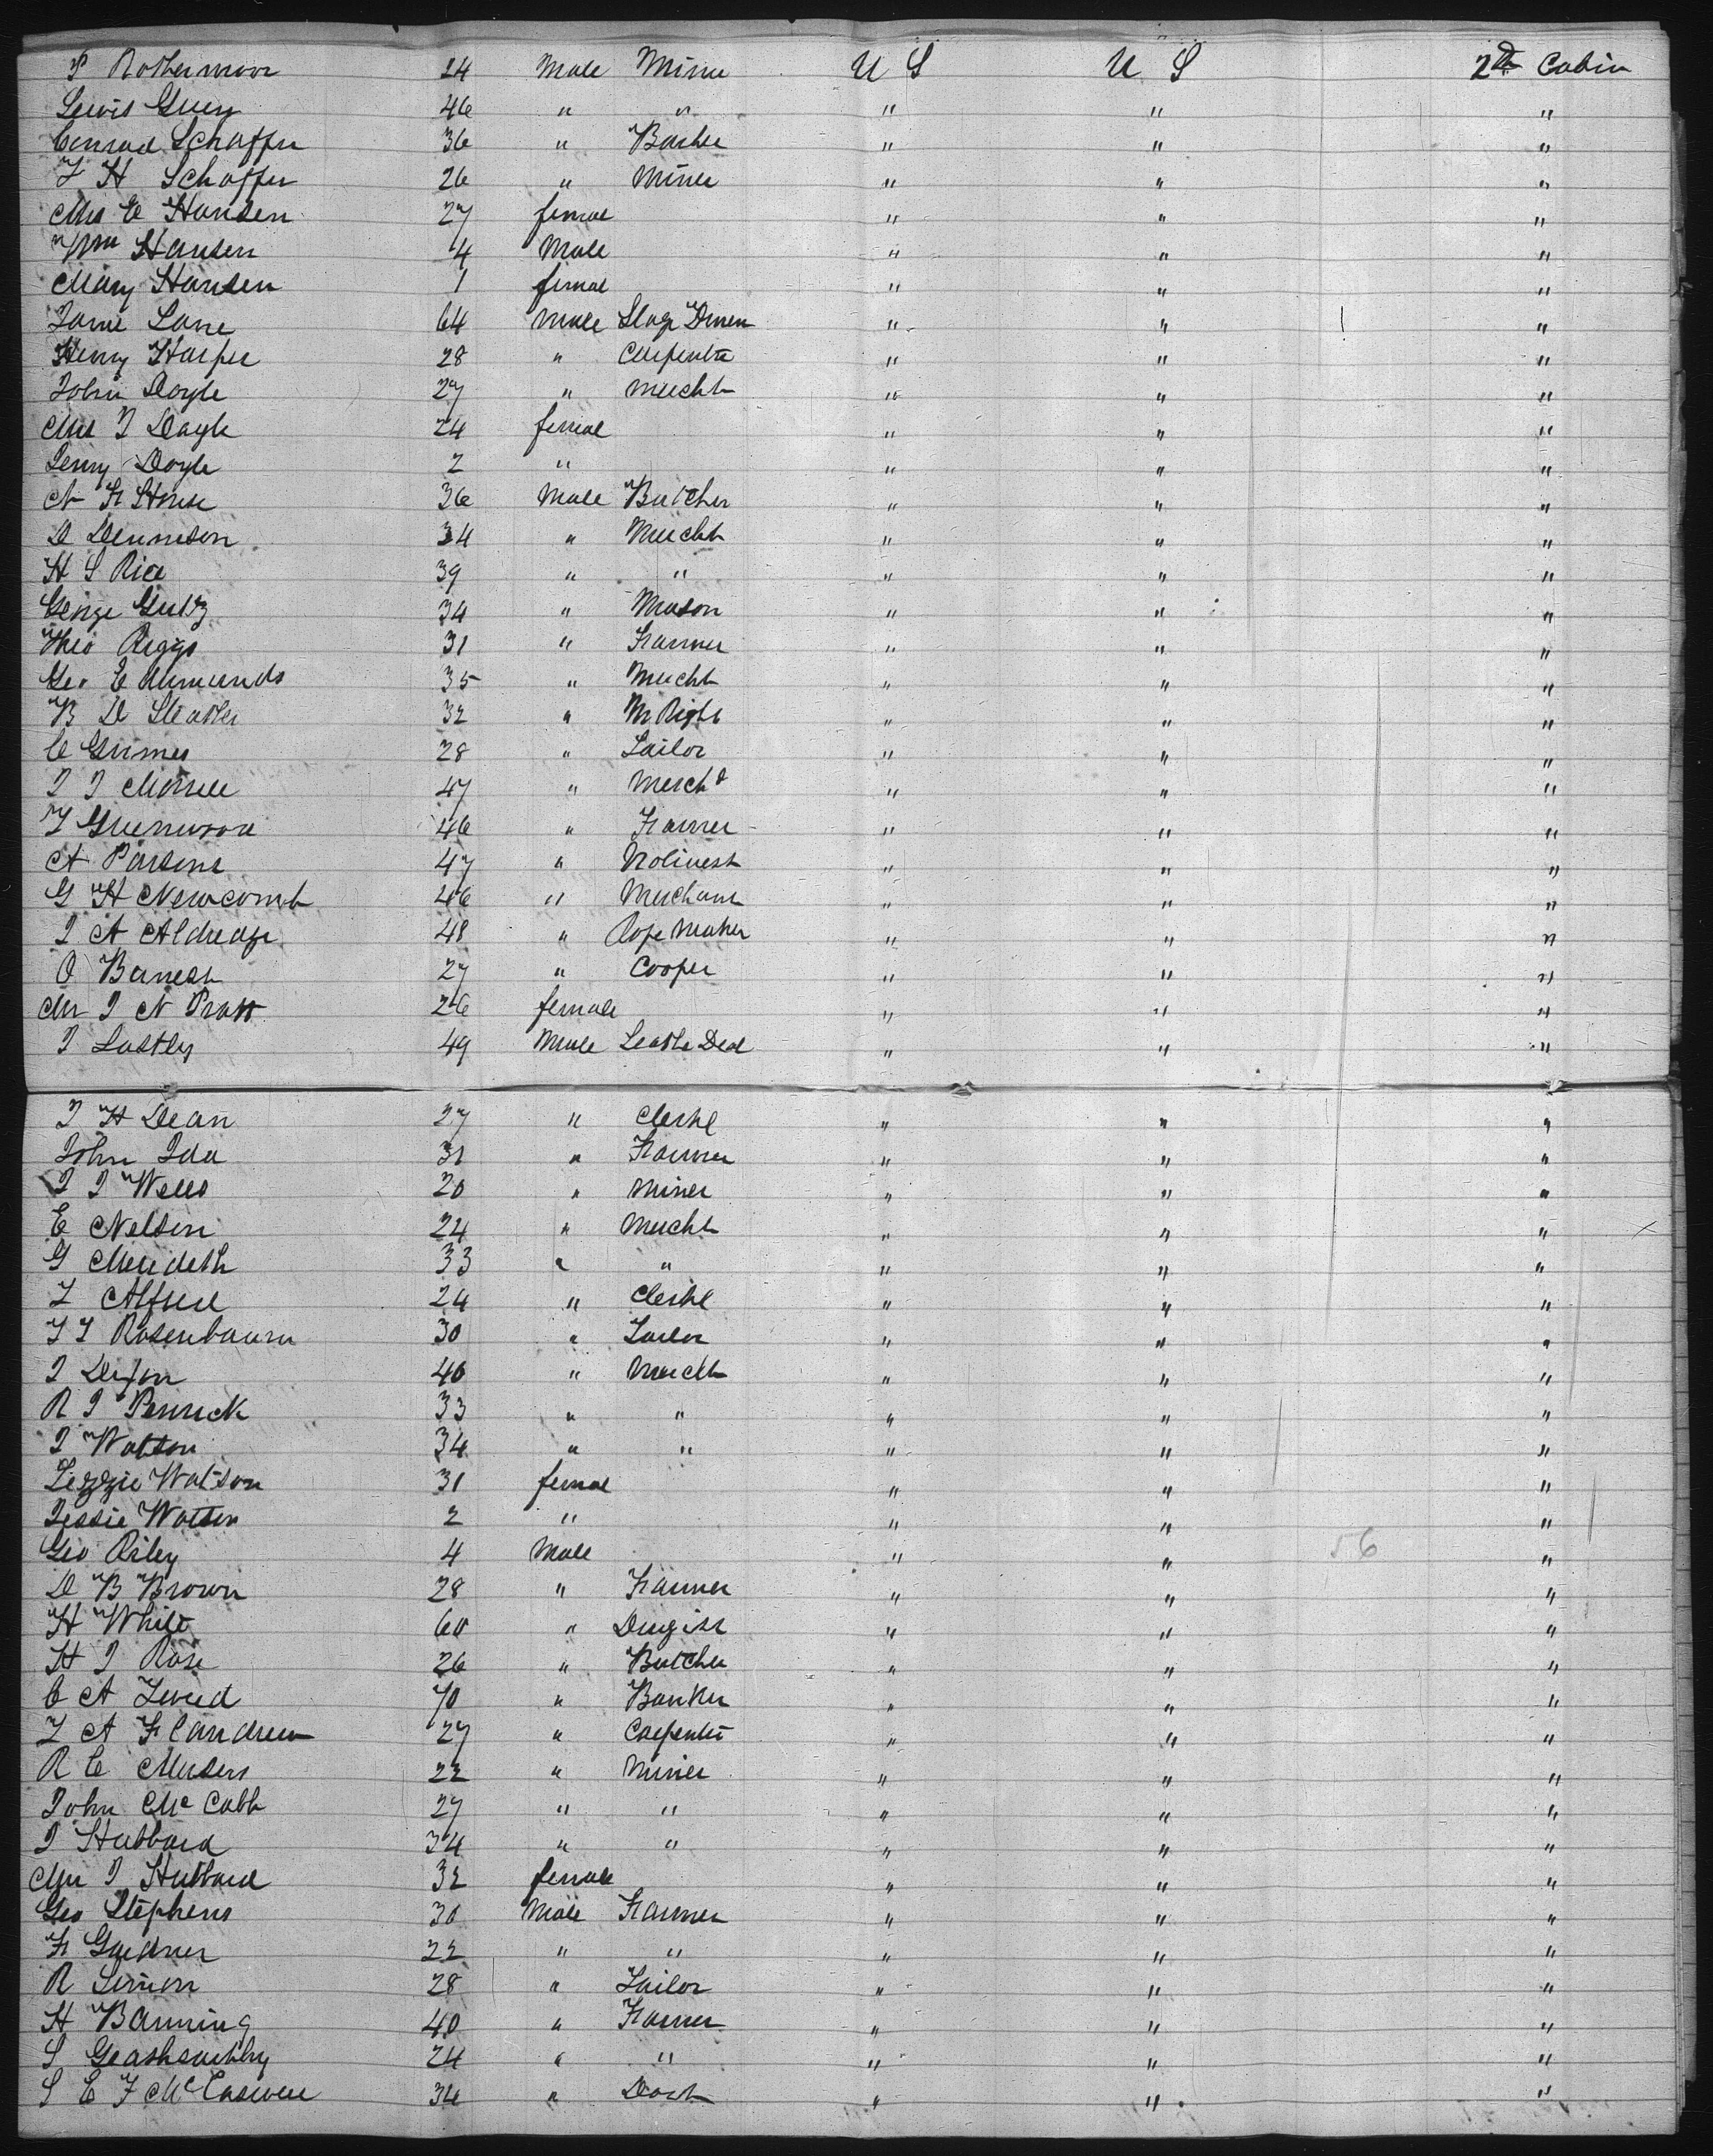 P Rothermoor 24 Male Miner U S U S 2d Cabin
Lewis Guery 46 " " " " "
Conrad Schaffer 36 " Barber " " "
T H Schaffer 26 " Miner " " "
Mrs E Hansen 27 femal " " "
Wm Hansen 4 Male " " "
Mary Hansen 1 femal " " "
Lane 64 Male Stage " " "
Henry Harper 28 " Carpenter " " "
John Doyle 27 " Mercht " " "
Mrs J Doyle 24 femal " " "
Jenny Doyle 2 " " " "
N F House 36 Male Butcher " " "
D Dennison 34 " Mercht " " "
H S Rice 39 " " " " "
George Gultz 34 " Mason " " "
Theo Riggs 31 " Farmer " " "
Geo Edmunds 35 " Mercht " " "
B D 32 " M Right " " "
C Grimes 28 " Sailor " " "
J J Morrell 47 " Merchd " " "
T Greenwood 46 " Farmer " " "
A Parsens 47 " " " "
G H Newcomb 46 " Merchant " " "
J A 48 " Rope Maker " " "
O 27 " Cooper " " "
Mr J N Pratt 26 female " " "
J Lastly 49 Male Leathe Deal " " "
J H Dean 27 " Clerke " " "
John Ida 31 " Farmer " " "
J J Wells 20 " Miner " " "
E Nelson 24 " Mercht " " "
G Merideth 33 " " " " "
T Alfred 24 " Clerke " " "
T T Rosenbaum 30 " Tailor " " "
J Dixon 40 " Mercht " " "
R J Penrick 33 " " " " "
J Watson 34 " " " " "
Lizzie Watson 31 femal " " "
Jessie Watson 2 " " " "
Geo Riley 4 Male " " " 56
D B Brown 28 " Farmer " " "
H White 60 " Drugist " " "
H J Rose 26 " Butcher " " "
C A Tweed 70 " Banker " " "
T A Flandrew 27 " Carpenter " " "
R C Musen 22 " Miner " " "
John McCabb 27 " " " " "
J Hubbard 34 " " " " "
Mrs J Hubbard 32 female " " "
Geo Stephens 30 Male Farmer " " "
F Gardner 22 " " " " "
R Simon 28 " Tailor " " "
H Banning 40 " Farmer " " "
S 24 " " " " "
S E F 34 " Doct " " "